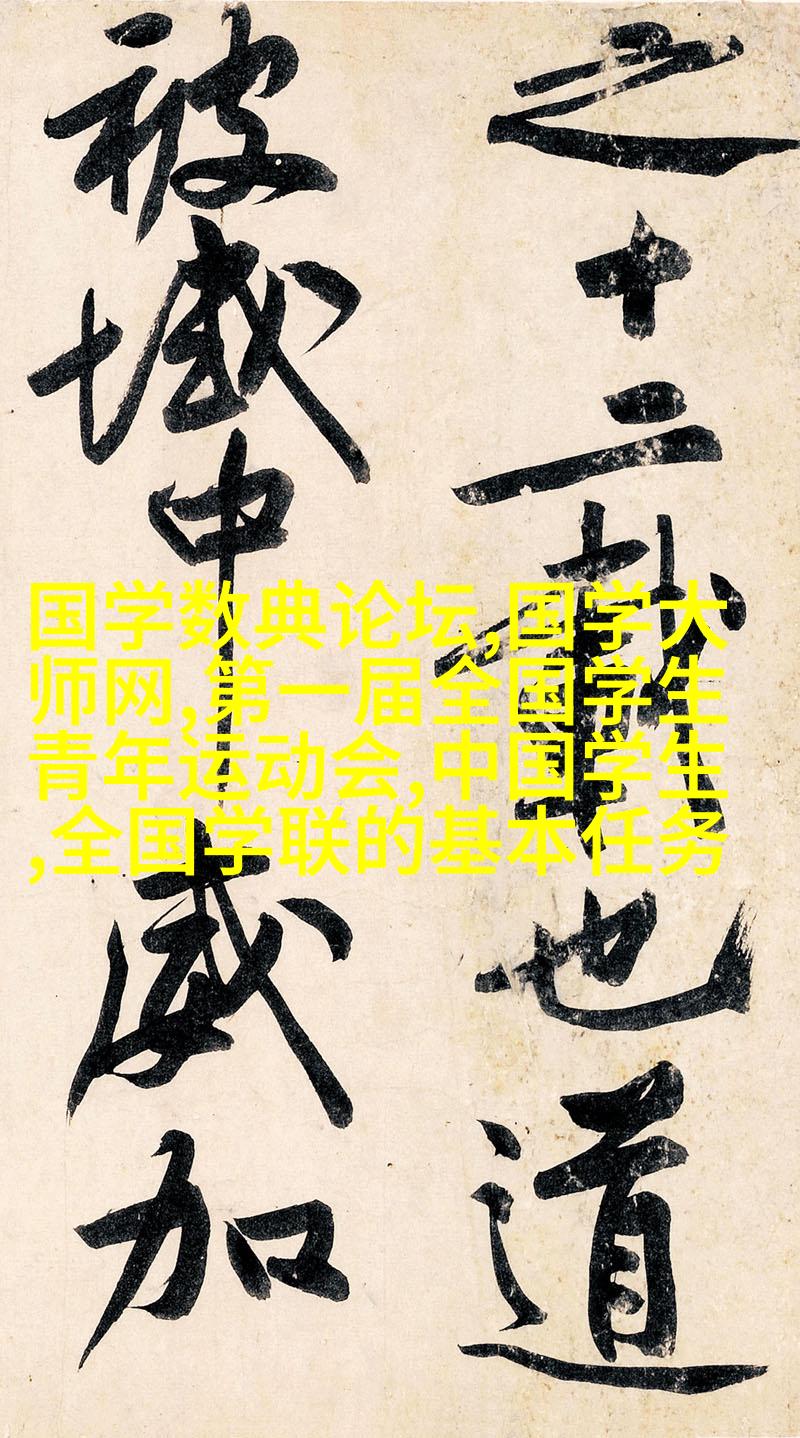 之十二載也道
被域中威加
国学数典论坛,国学大
师网,第一届全国学生
青年运动会,中国学生
,全国学联的基本任务